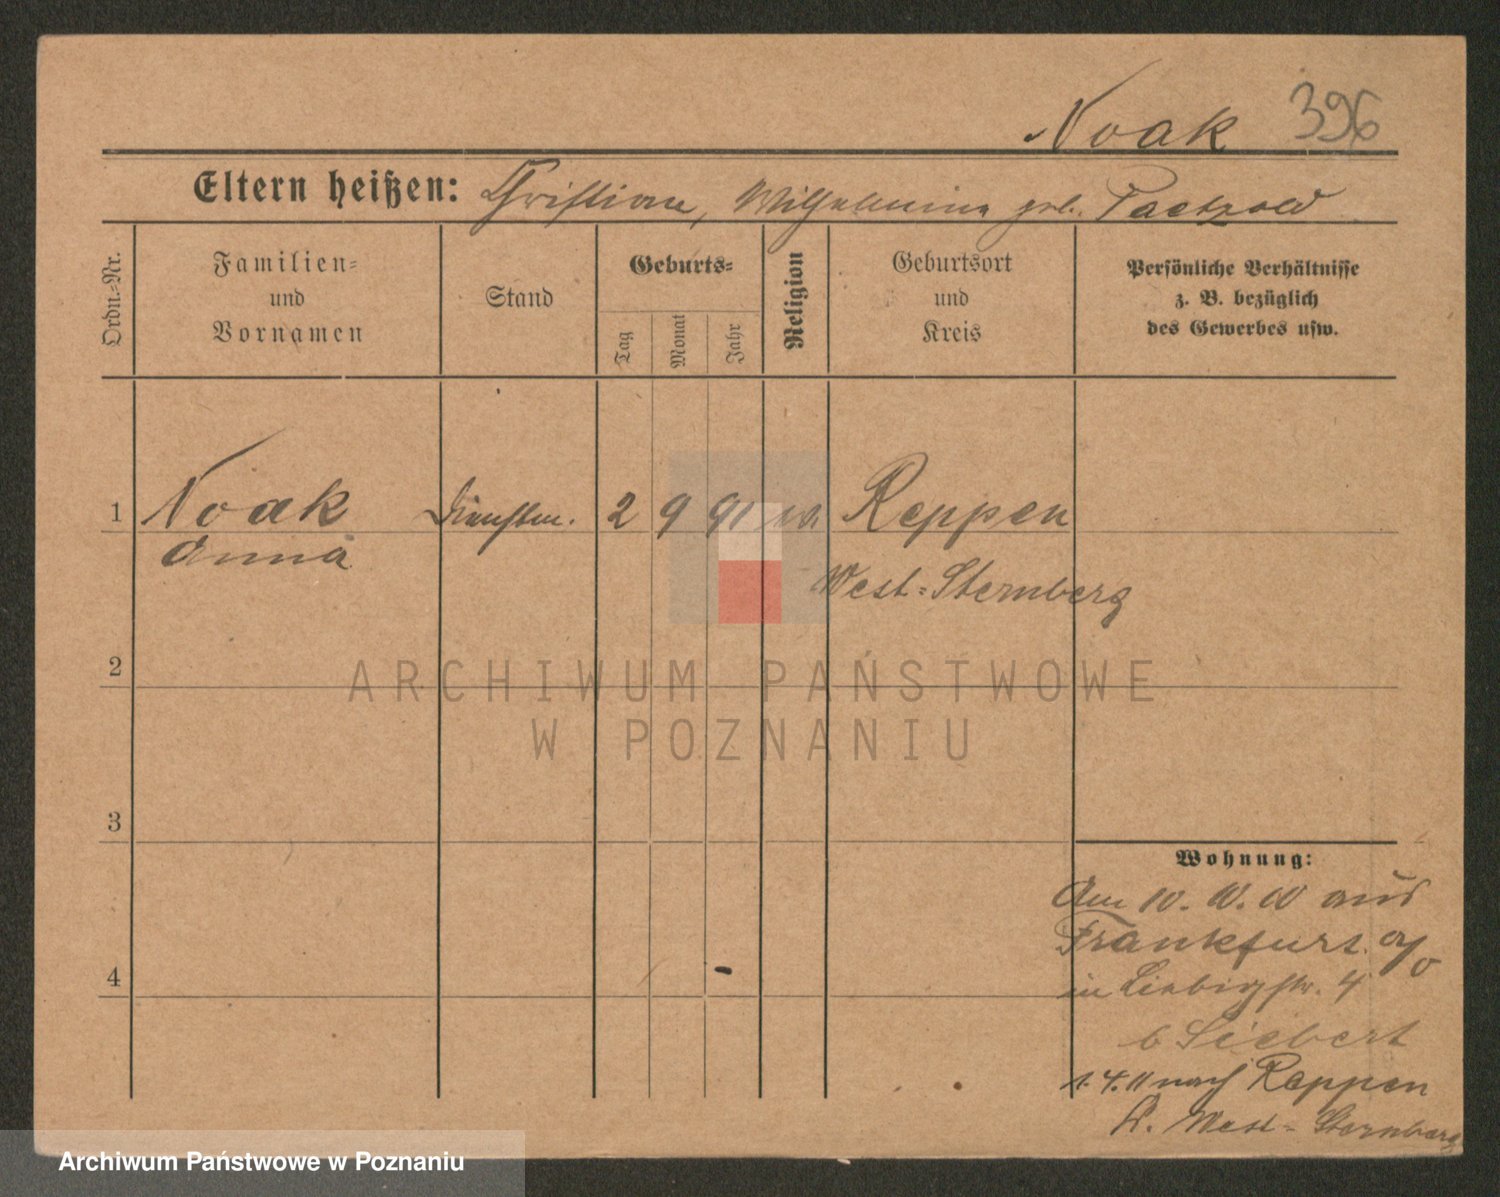 Noak 396
Eltern heißen: Christian, Wilhelmine geb. Paetzold
Ordn.=Nr.
Familien=
und
Vornamen
Stand
Geburts=
Tag
Monat
Jahr
Religion
Geburtsort
und
Kreis
Persönliche Verhältnisse
z. B. bezüglich
des Gewerbes usw.
1 Noak Dienstm. 2 9 91 ev. Reppen
Anna
West=Sternberg
2
3
4
Wohnung:
Am 10. 10. 10 aus
Frankfurt a/O
in Liebigstr. 4
b Siebert
1.4.11 nach Reppen
Kr. West=Sternberg
ARCHIWUM PAŃSTWOWE
W POZNANIU
Archiwum Państwowe w Poznaniu